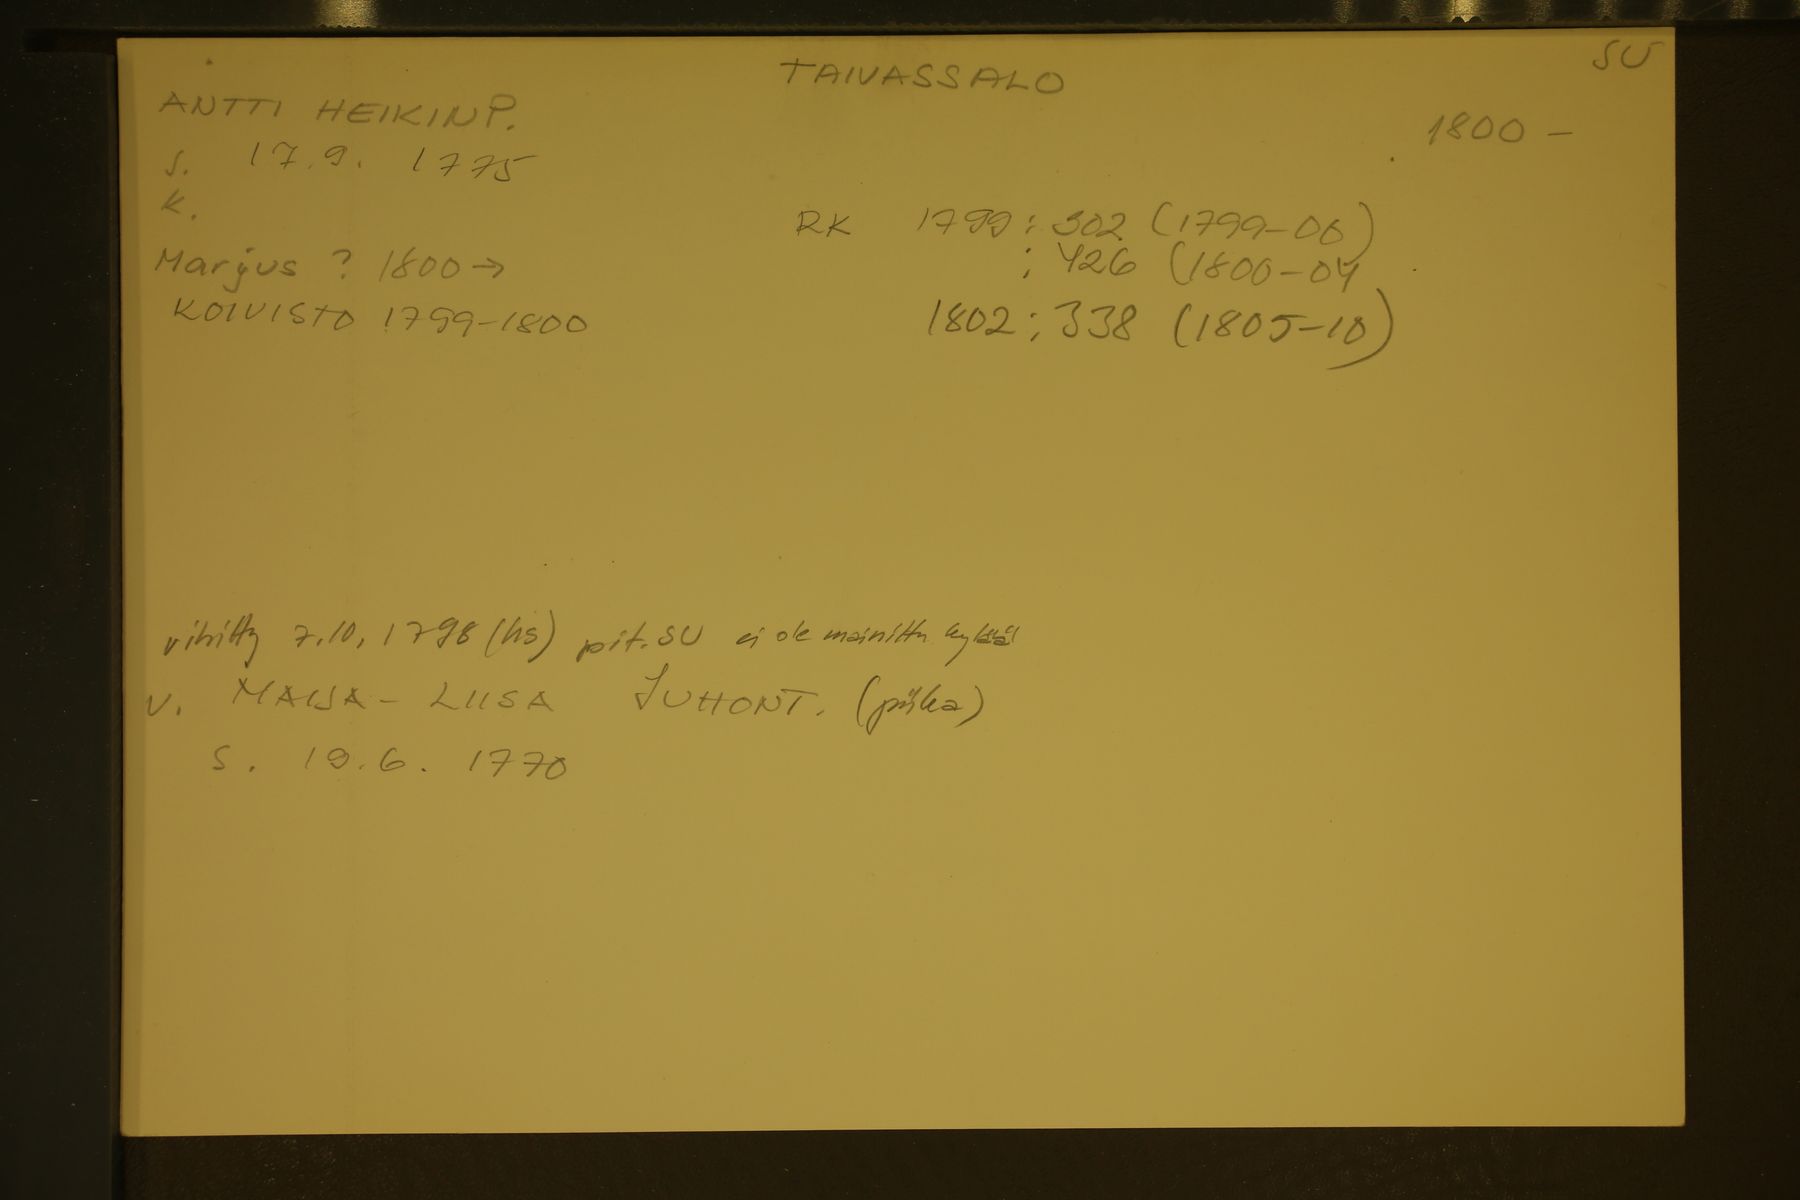 SU
TAIVASSALO
ANTTI HEIKINP.
1800 –
s. 17.9. 1775
k.
RK 1799 ; 302 (1799-00)
Marjus ? 1800 →
; 426 (1800-04
KOIVISTO 1799-1800
1802 ; 338 (1805-10)
vihitty 7.10.1798 (hs) pit. SU ei ole mainittu kylää
v. MAIJA- LIISA JUHONT. (piika)
s. 19.6. 1770